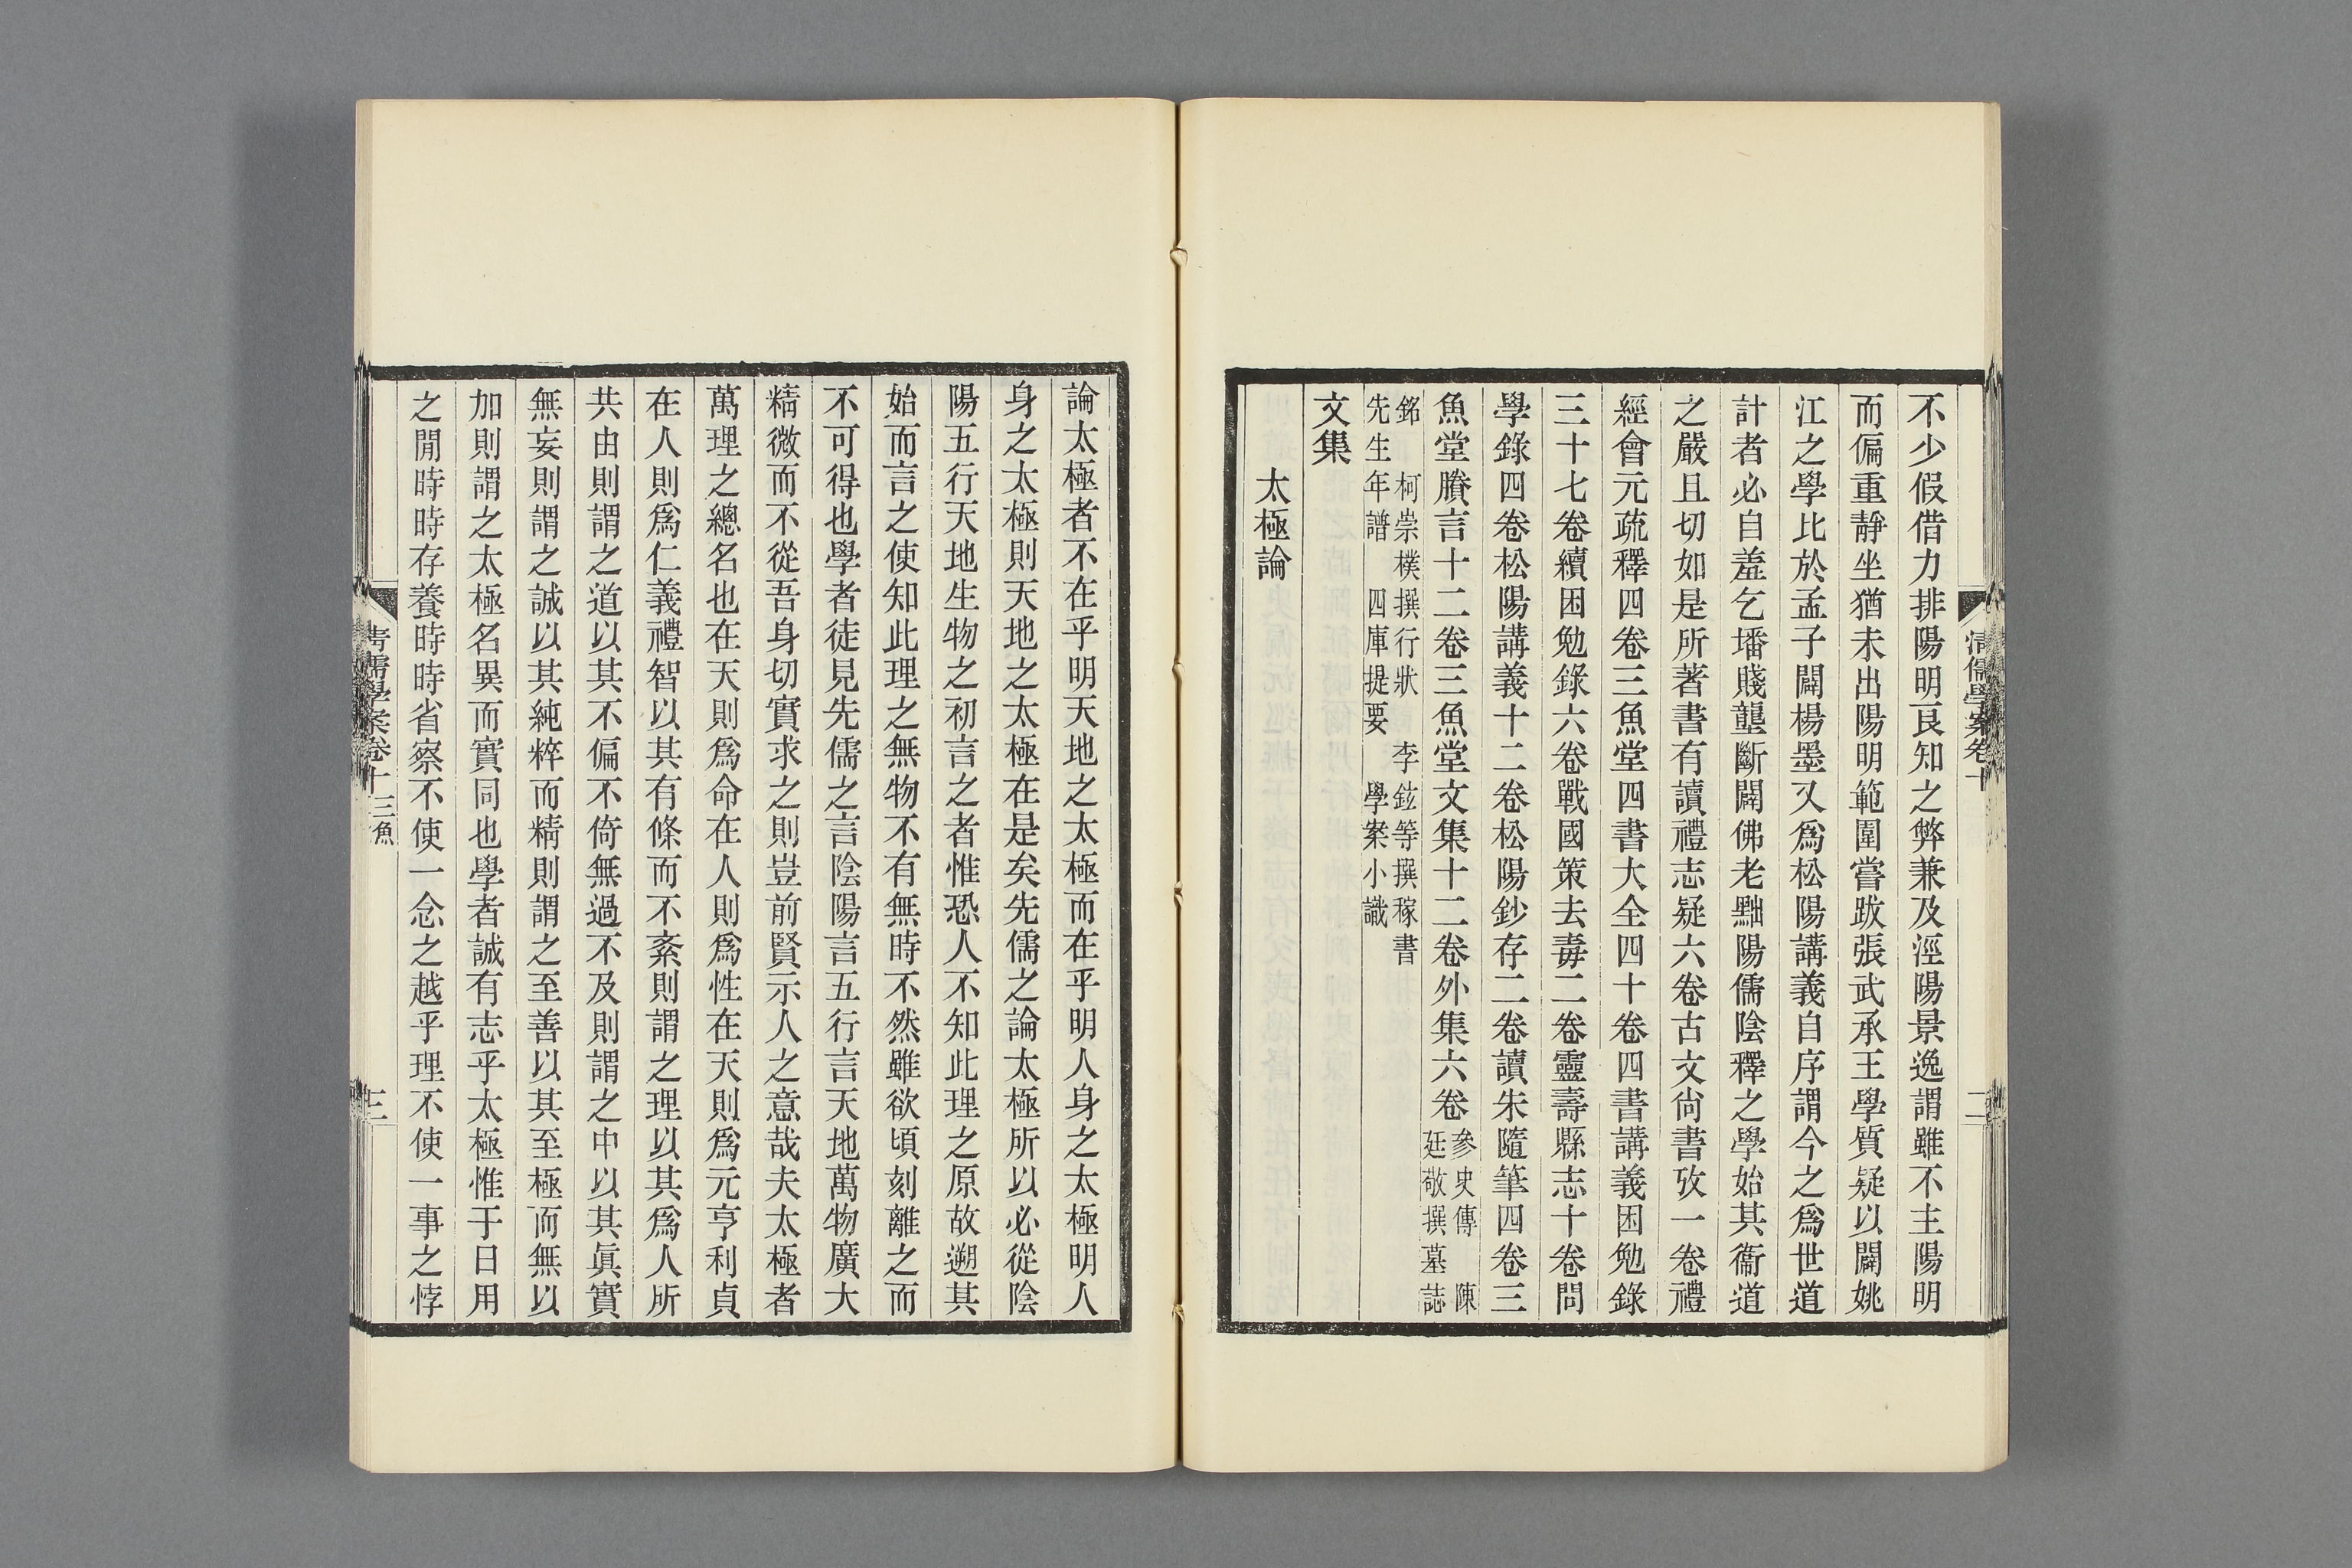 不少假借力排陽明良知之弊兼及涇陽景逸謂雖不主陽明
而偏重靜坐猶未出陽明範圍嘗跋張武承王學質疑以闢姚
江之學比於孟子闢楊墨又爲松陽講義自序謂今之爲世道
計者必自羞乞墦賤壟斷闢佛老黜陽儒陰釋之學始其衞道
之嚴且切如是所著書有讀禮志疑六卷古文尙書攷一卷禮
經會元疏釋四卷三魚堂四書大全四十卷四書講義困勉錄
三十七卷續困勉錄六卷戰國策去毒二卷靈壽縣志十卷問
學錄四卷松陽講義十二卷松陽鈔存二卷讀朱隨筆四卷三
魚堂賸言十二卷三魚堂文集十二卷外集六卷
參史傳 陳
廷敬撰墓誌
銘 柯崇樸撰行狀 李鉉等撰稼書
先生年譜 四庫提要 學案小識
文集
太極論
清儒學案卷十
二
論太極者不在乎明天地之太極而在乎明人身之太極明人
身之太極則天地之太極在是矣先儒之論太極所以必從陰
陽五行天地生物之初言之者惟恐人不知此理之原故遡其
始而言之使知此理之無物不有無時不然雖欲頃刻離之而
不可得也學者徒見先儒之言陰陽言五行言天地萬物廣大
精微而不從吾身切實求之則豈前賢示人之意哉夫太極者
萬理之總名也在天則爲命在人則爲性在天則爲元亨利貞
在人則爲仁義禮智以其有條而不紊則謂之理以其爲人所
共由則謂之道以其不偏不倚無過不及則謂之中以其眞實
無妄則謂之誠以其純粹而精則謂之至善以其至極而無以
加則謂之太極名異而實同也學者誠有志乎太極惟于日用
之閒時時存養時時省察不使一念之越乎理不使一事之悖
清儒學案卷十 三魚
三